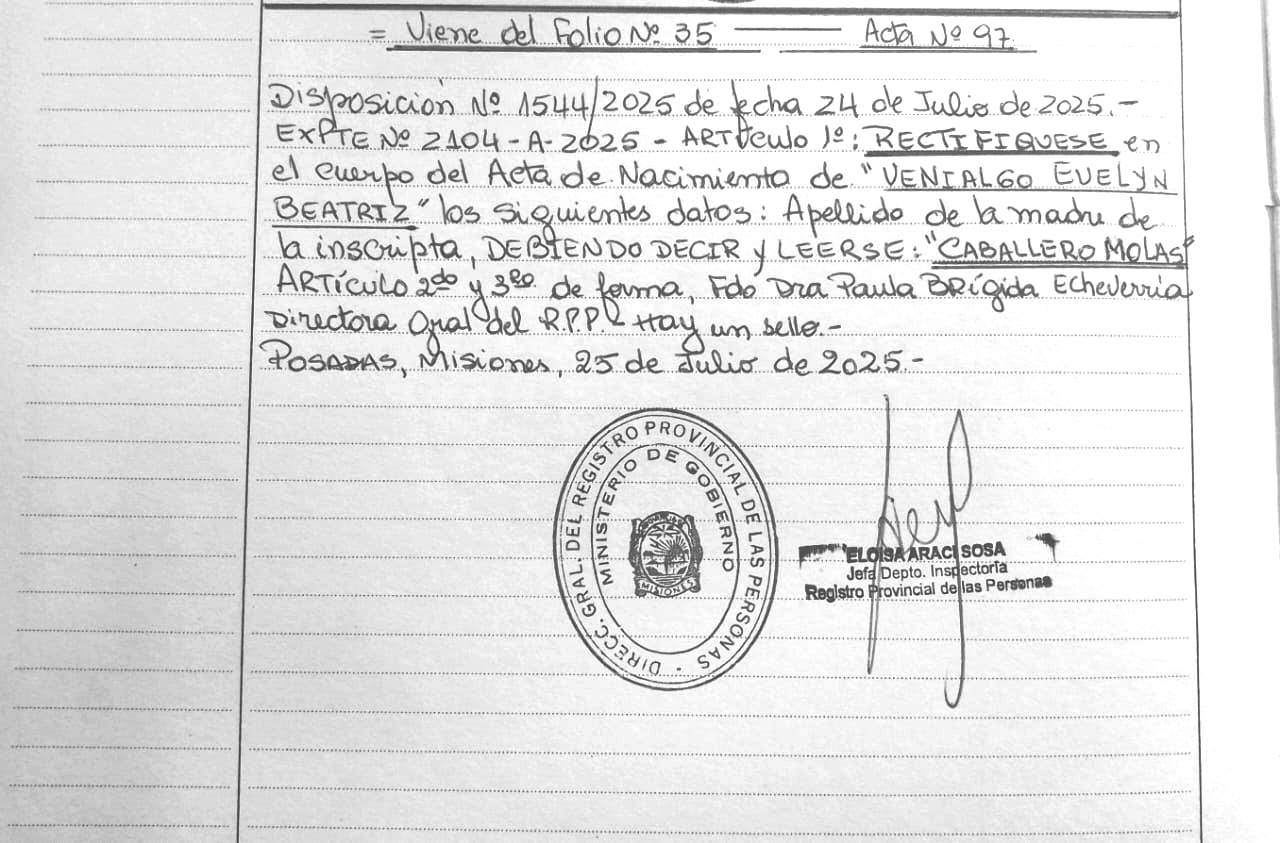 = Viene del Folio Nº 35 ——— Acta Nº 97
Disposición Nº 1544/2025 de fecha 24 de Julio de 2025.-
EXPTE Nº 2104-A-2025 - ARTÍculo 1º: RECTIFIQUESE en
el cuerpo del Acta de Nacimiento de "VENIALGO EVELYN
BEATRIZ" los siguientes datos: Apellido de la madre de
la inscripta, DEBIENDO DECIR y LEERSE: "CABALLERO MOLAS"
ARTÍCULO 2do y 3Ro. de forma, Fdo Dra Paula BRígida Echeverria
Directora Gral del R.P.P - Hay un sello.-
POSADAS, Misiones, 25 de Julio de 2025.-
DIRECC. GRAL. DEL REGISTRO PROVINCIAL DE LAS PERSONAS -
MINISTERIO DE GOBIERNO
MISIONES
ELOISA ARACI SOSA
Jefa Depto. Inspectoría
Registro Provincial de las Personas